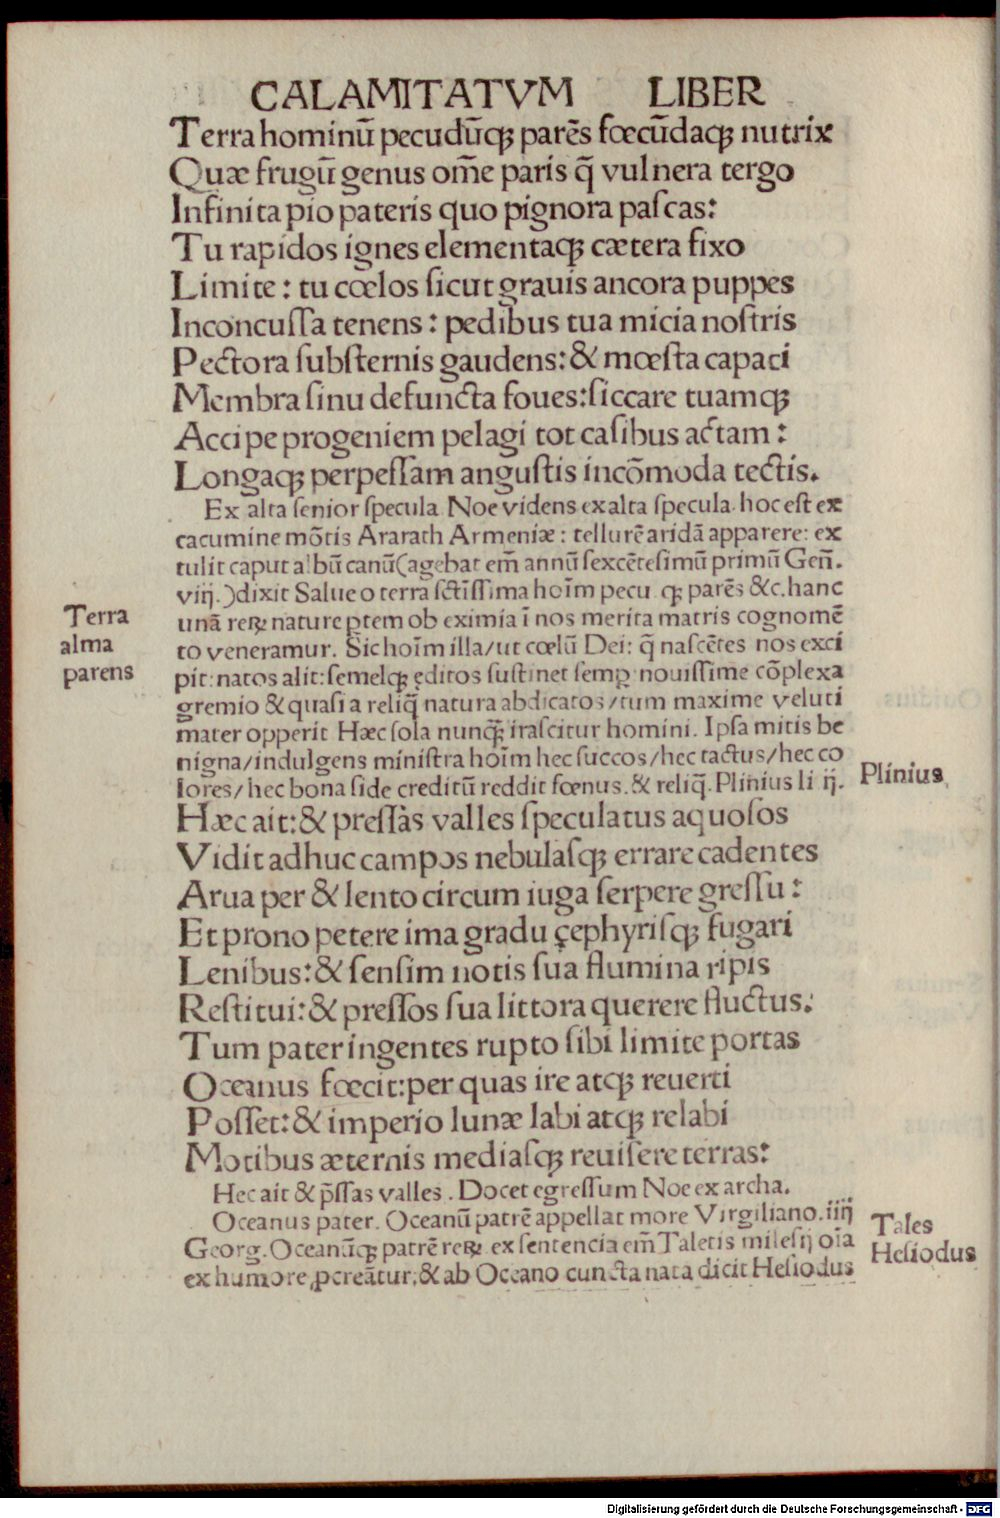 CALAMITATVM LIBER
Terra hominū pecudūq; parēs fœcūdaq; nutrix
Quæ frugū genus om̄e paris q̄ vulnera tergo
Infinita pio pateris quo pignora paſcas:
Tu rapidos ignes elementaq; cætera fixo
Limite: tu cœlos ſicut grauis ancora puppes
Inconcuſſa tenens: pedibus tua micia noſtris
Pectora ſubſternis gaudens: & mœſta capaci
Membra ſinu defuncta foues: ſiccare tuamq;
Accipe progeniem pelagi tot caſibus actam:
Longaq; perpeſſam anguſtis incōmoda tectis.
Ex alta ſenior ſpecula Noe videns ex alta ſpecula. hoc eſt ex
cacumine mōtis Ararath Armeniæ: tellurē aridā apparere: ex
tulit caput albū canū (agebat em̄ annū ſexcēteſimū primū Gen̄.
viij.) dixit Salue o terra ſctīſſima hoīm pecu q; parēs &c. hanc
unā reꝝ nature ꝑtem ob eximia ī nos merita matris cognomē
to veneramur. Sic hoīm illa/ut cœlū Dei: q̄ naſcētes nos exci
pit: natos alit: ſemelq; ęditos ſuſtinet ſemꝑ nouiſſime cōplexa
gremio & quaſi a reliq̄ natura abdicatos/tum maxime veluti
mater opperit Hæc ſola nunq̄; iraſcitur homini. Ipſa mitis be
nigna/indulgens miniſtra hoīm hec ſuccos/hec tactus/hec co
lores/hec bona fide creditū reddit fœnus. & reliq̄. Plinius li ij.
Terra
alma
parens
Plinius
Hæc ait: & preſſàs valles ſpeculatus aquoſos
Vidit adhuc campos nebulaſq; errare cadentes
Arua per & lento circum iuga ſerpere greſſu:
Et prono petere ima gradu çephyriſq; fugari
Lenibus: & ſenſim notis ſua flumina ripis
Reſtitui: & preſſos ſua littora querere fluctus.
Tum pater ingentes rupto ſibi limite portas
Oceanus fœcit: per quas ire atq; reuerti
Poſſet: & imperio lunæ labi atq; relabi
Motibus æternis mediaſq; reuiſere terras:
Hec ait & p̄ſſas valles. Docet egreſſum Noe ex archa.
Oceanus pater. Oceanū patrē appellat more Virgiliano. iiij
Georg. Oceanūq; patrē reꝝ ex ſentencia em̄ Taletis mileſij oīa
ex humore ꝓcreātur, & ab Oceano cuncta nata dicit Heſiodus
Tales
Heſiodus
Digitalisierung gefördert durch die Deutsche Forschungsgemeinschaft - DFG